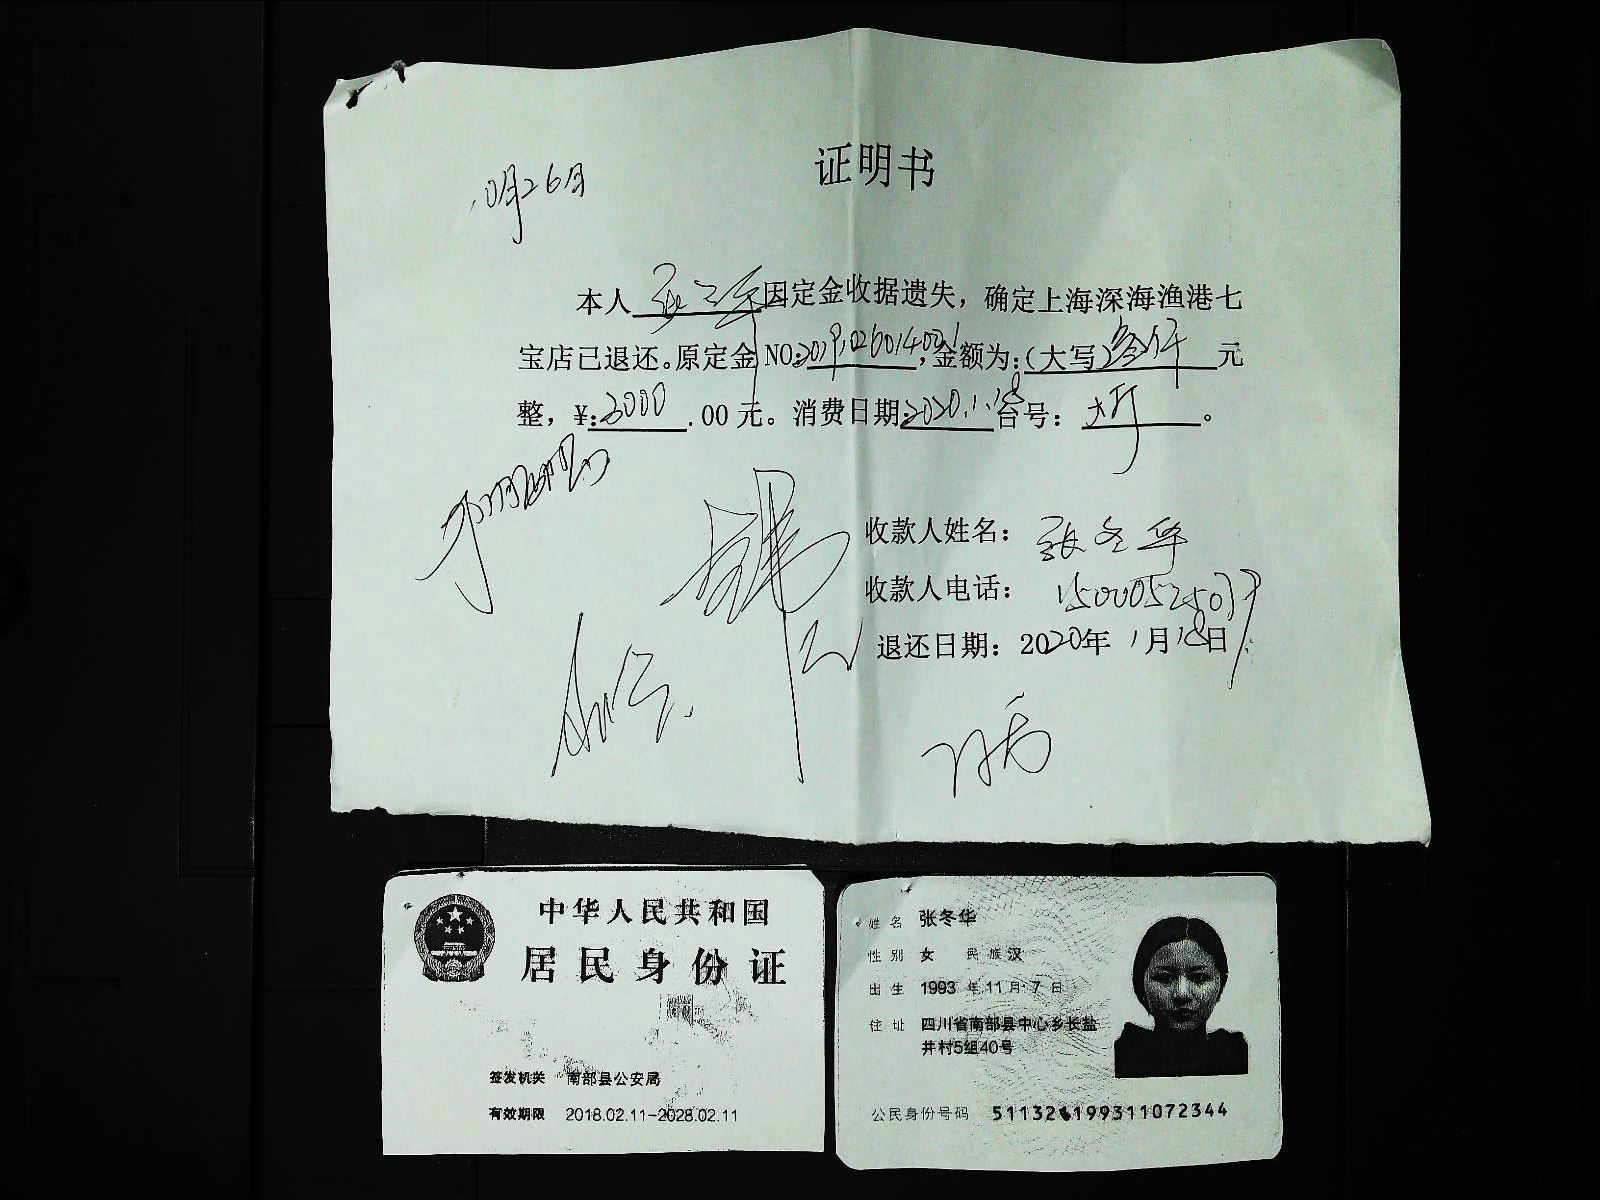 证明书
10月26日
本人张冬华因定金收据遗失，确定上海深海渔港七
宝店已退还。原定金NO:，金额为:(大写)叁仟元
整，¥:3000.00元。消费日期:2020.1.18台号：大厅。
收款人姓名：张冬华
收款人电话：
退还日期：2020年1月18日
中华人民共和国
居民身份证
签发机关 南部县公安局
有效期限 2018.02.11-2028.02.11
姓名 张冬华
性别 女 民族 汉
出生 1993年11月7日
住址 四川省南部县中心乡长盐
井村5组40号
公民身份号码 511321199311072344